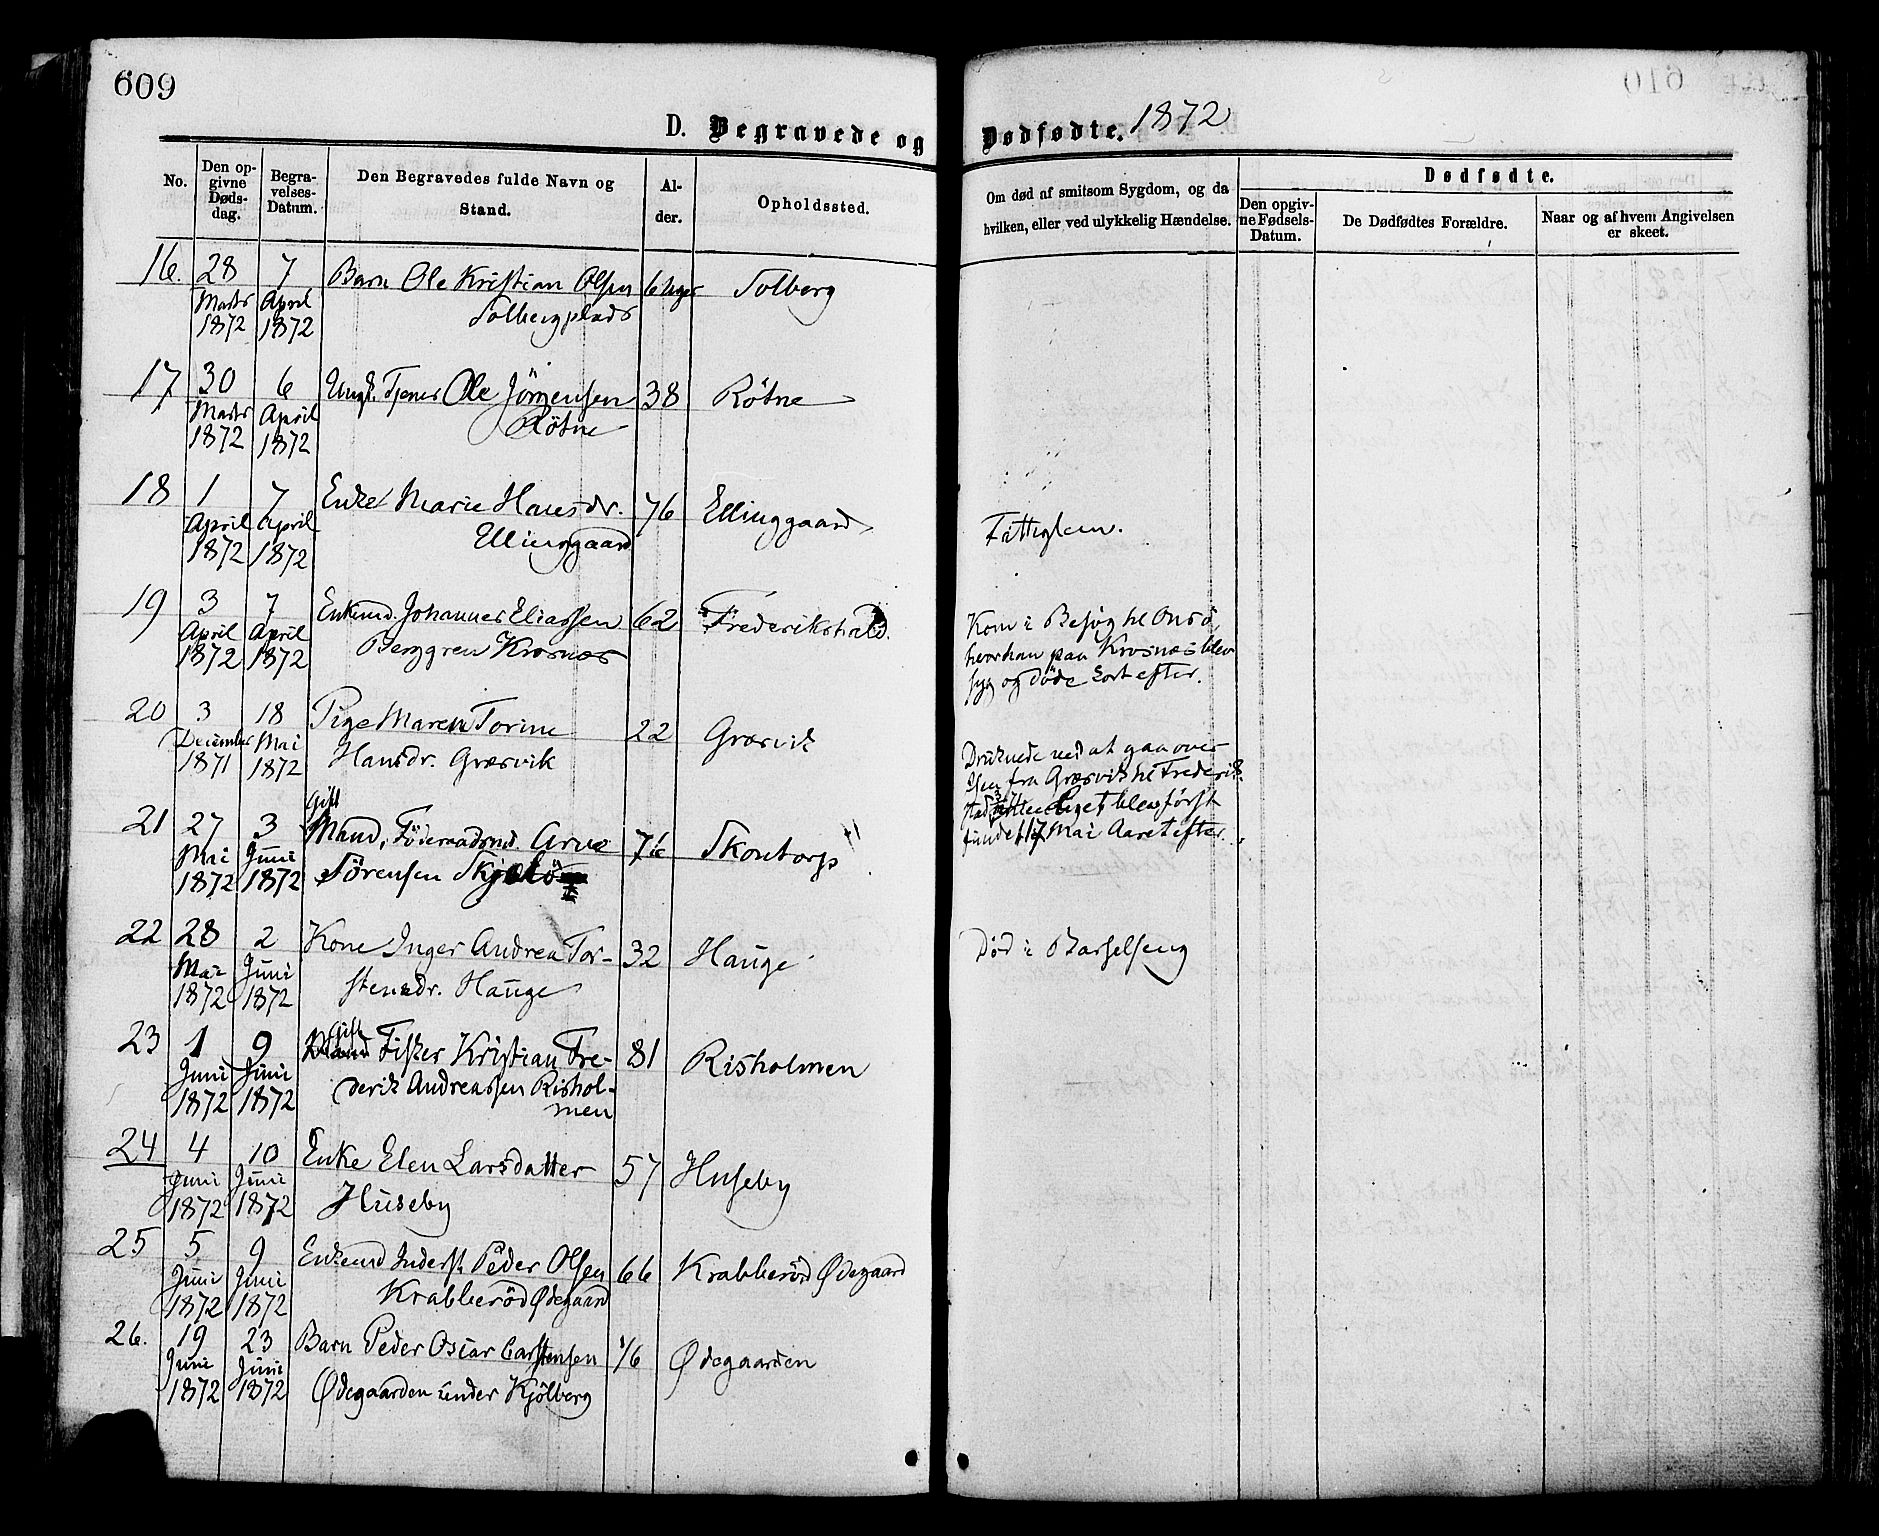 609
D. Begravede og Dødfødte. 1872
No.
Den opgivne Dødsdag.
Begravelses-Datum.
Den Begravedes fulde Navn og Stand.
Alder.
Opholdssted.
Om død af smitsom Sygdom, og da hvilken, eller ved ulykkelig Hændelse.
Dødfødte.
Den opgivne Fødsels-Datum.
De Dødfødtes Forældre.
Naar og af hvem Angivelsen er skeet.
16. 28 7 Barn Ole Kristian Olsen 6 Solberg
Marts April Solbergplads
1872 1872
17 30 6 Ungk. Tjener Ole Jörgensen 38 Rötne
Marts April Rötne
1872 1872
18 1 7 Enke Marie Hansdr. 76 Ellinggaard
April April Ellinggaard Fattiglem.
1872 1872
19 3 7 Enkemd. Johannes Eliassen 62 Frederikshald. Kom i Besøg til Onsö,
April April Berggren Krosnæs hvor han paa Krosnæs blev
1872 1872 syg og døde kort efter.
20 3 18 Pige Maren Torine 22 Græsvik
December Mai Hansdr. Græsvik Druknede ved at gaa over
1871 1872 Isen fra Græsvik til Frederik-
stad Liget blev først
fundet 17 Mai Aaret efter.
21 27 3 Gift Mand, Föderaadsmd. Arne 76 Skontorp
Mai Juni Sörensen
1872 1872
22 28 2 Kone Inger Andrea Tor- 32 Hauge Død i Barselseng
Mai Juni stensdr. Hauge
1872 1872
23 1 9 Gift Mand Fisker Kristian Fre- 81 Risholmen
Juni Juni derik Andreassen Rishol-
1872 1872 men
24 4 10 Enke Elen Larsdatter 57 Huseby
Juni Juni Huseby
1872 1872
25 5 9 Enkemd Inderst. Peder Olsen 66 Krabberöd Ødegaard
Juni Juni Krabberöd Ødegaard
1872 1872
26. 19 23 Barn Peder Oscar Carstensen 1/6 Ødegaarden
Juni Juni Ødegaarden under Kjölberg
1872 1872